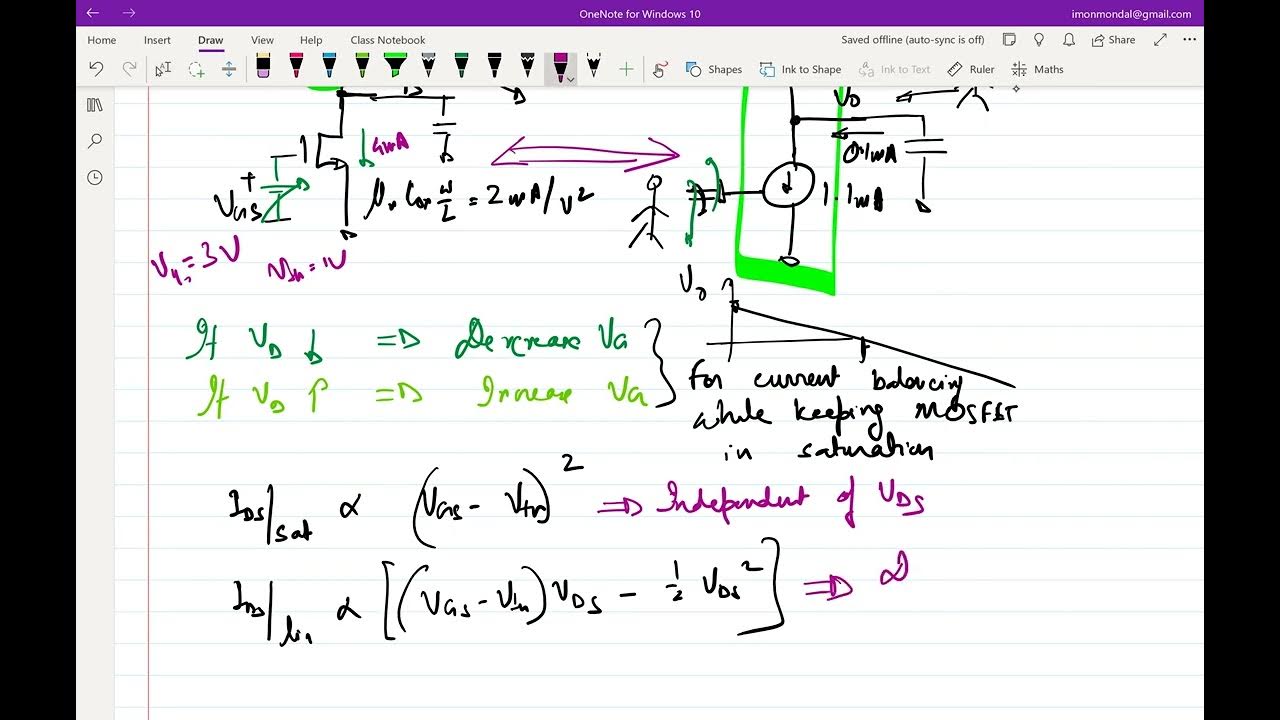 OneNote for Windows 10
imonmondal@gmail.com
Home Insert Draw View Help Class Notebook
Saved offline (auto-sync is off) Share
Shapes Ink to Shape Ink to Text Ruler Maths
V_D
4mA
0.1mA
1.1mA
V_GS
μ_n C_ox W/L = 2 mA/V²
= 3V
V_th = 1V
If V_D ↓ ⇒ Decrease V_G
If V_D ↑ ⇒ Increase V_G
For current balancing
while keeping MOSFET
in saturation
I_DS|sat ∝ (V_GS - V_th)² ⇒ Independent of V_DS
I_DS|lin ∝ [(V_GS - V_th) V_DS - 1/2 V_DS²] ⇒